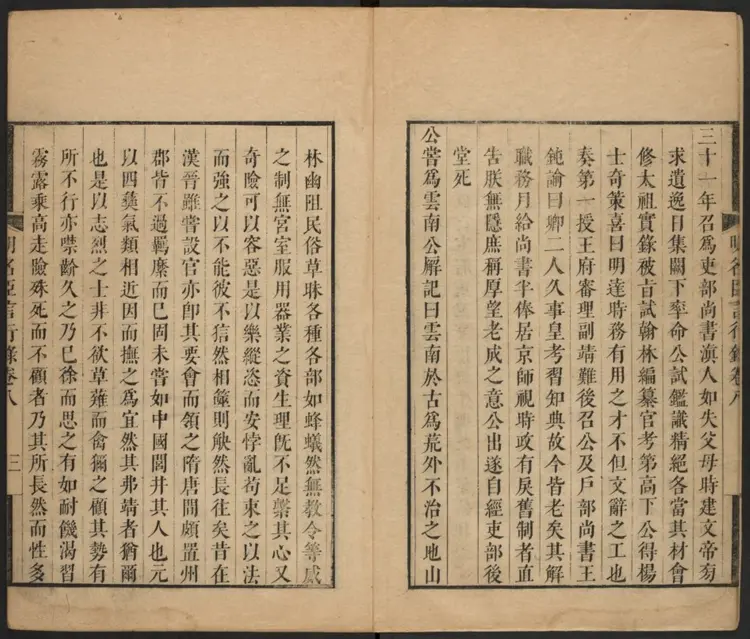 明名臣言行錄卷八
三十一年召爲吏部尚書滇人如失父母時建文帝旁
求遺逸日集闕下率命公試鑑識精絕各當其材會
修太祖實錄被㫖試翰林編纂官考第高下公得楊
士奇策喜曰明達時務有用之才不但文辭之工也
奏第一授王府審理副靖難後召公及戶部尚書王
鈍諭曰卿二人久事皇考習知典故今皆老矣其解
職務月給尚書半俸居京師視時政有戾舊制者直
告朕無隱庶稱厚望老成之意公出遂自經吏部後
堂死
公嘗爲雲南公廨記曰雲南於古爲荒外不治之地山
林幽阻民俗草昧各種各部如蜂蟻然無教令等威
之制無宮室服用器業之資生理旣不足槩其心又
奇險可以容惡是以樂縱恣而安悖亂苟束之以法
而強之以不能彼不猖然相齮則觖然長往矣昔在
漢晉雖嘗設官亦卽其要會而領之隋唐間頗置州
郡皆不過羈縻而已固未嘗如中國閭井其人也元
以四彝氣類相近因而撫之爲宜然其弗靖者猶爾
也是以志烈之士非不欲草薙而禽獮之顧其勢有
所不行亦噤齡久之乃已徐而思之有如耐饑渴習
霧露乘高走險殊死而不顧者乃其所長然而性多
明名臣言行錄卷八
三